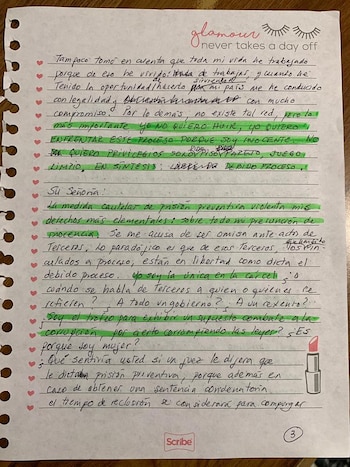 glamour
never takes a day off
Tampoco tomé en cuenta que toda mi vida he trabajado
porque de eso he vivido: de trabajar, y cuando he
Tenido la oportunidad de sirviendo a mi país me he conducido
con legalidad y con mucho
compromiso. Por lo demás, no existe tal red, pero lo
más importante YO NO QUIERO HUIR, YO QUIERO
ENFRENTAR ESTE PROCESO PORQUE SOY INOCENTE. NO
QUIERO PRIVILEGIOS, SOLO PISO PAREJO, JUEGO
LIMPIO, EN SÍNTESIS: DEBIDO PROCESO.
Su Señoría:
La medida cautelar de prisión preventiva violenta mis
derechos más elementales: sobre todo mi presunción de
inocencia. Se me acusa de ser omisa ante actos de
Terceros. Lo paradójico es que de esos Terceros, los vin-
culados a proceso, están en libertad como dicta el
debido proceso. Yo soy la única en la cárcel. ¿O
cuándo se habla de Terceros a quien o quienes se
refieren? ¿A todo un gobierno? ¿A un sexenio?
¿Soy el trofeo para exhibir un supuesto combate a la
corrupción, por cierto corrompiendo las leyes? ¿Es
porque soy mujer?
¿Qué sentiría usted si un juez le dijera que
le dicta prisión preventiva, porque además en
caso de obtener una sentencia condenatoria
el tiempo de reclusión se considerará para compurgar
Scribe
3